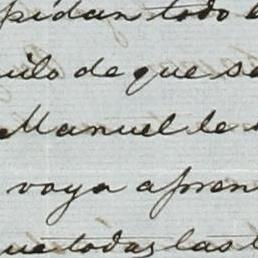 pidan todo
uilo de que se
Manuel le
vaya apren
que todas las